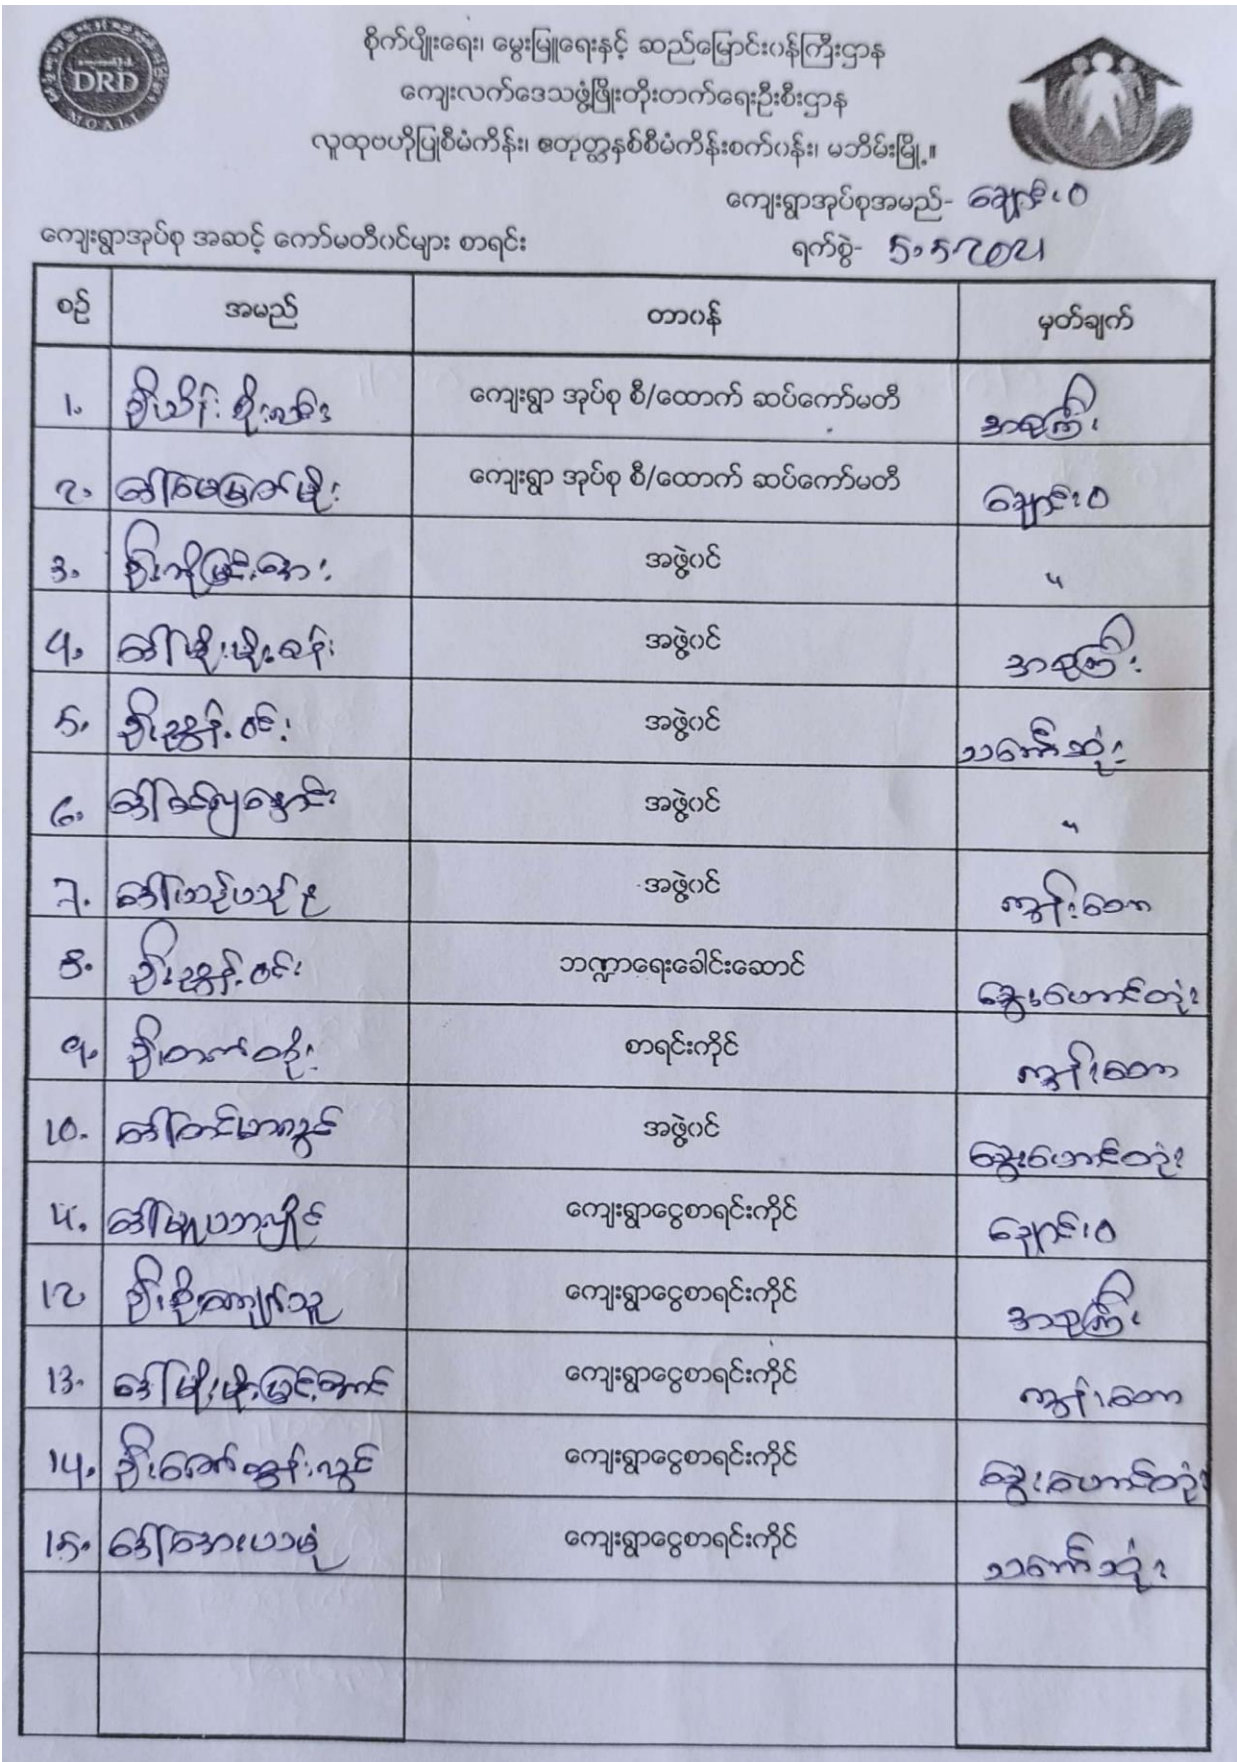 DRD
MOALI
စိုက်ပျိုးရေး၊ မွေးမြူရေးနှင့် ဆည်မြောင်းဝန်ကြီးဌာန
ကျေးလက်ဒေသဖွံ့ဖြိုးတိုးတက်ရေးဦးစီးဌာန
လူထုဗဟိုပြုစီမံကိန်း၊ ဧတုတ္တနှစ်စီမံကိန်းစက်ဝန်း၊ မဘိမ်းမြို့။
ကျေးရွာအုပ်စုအမည်- ချောင်းဝ
ကျေးရွာအုပ်စု အဆင့် ကော်မတီဝင်များ စာရင်း
ရက်စွဲ- 5.5.2021
စဉ် အမည် တာဝန် မှတ်ချက်
1. ဦးသိန်းစိုးလင်း ကျေးရွာ အုပ်စု စီ/ထောက် ဆပ်ကော်မတီ အစုကြီး
2. ဒေါ်မေမြတ်မိုး ကျေးရွာ အုပ်စု စီ/ထောက် ဆပ်ကော်မတီ ချောင်းဝ
3. အဖွဲ့ဝင် "
4. ဒေါ်မိုးမိုးခန်း အဖွဲ့ဝင် အစုကြီး
5. ဦးညွန့်ဝင်း အဖွဲ့ဝင် သင်္ဘောဆုံး
6. အဖွဲ့ဝင် "
7. အဖွဲ့ဝင် ကျွန်းတော
8. ဦးညွန့်ဝင်း ဘဏ္ဍာရေးခေါင်းဆောင် ခွေးဟောင်တုံး
9. ဦးတက်တိုး စာရင်းကိုင် ကျွန်းတော
10. ဒေါ်တင်မာလွင် အဖွဲ့ဝင် ခွေးဟောင်တုံး
11. ကျေးရွာငွေစာရင်းကိုင် ချောင်းဝ
12. ဦးစိုးကျော်သူ ကျေးရွာငွေစာရင်းကိုင် အစုကြီး
13. ဒေါ်မိုးမိုးမြင့်အောင် ကျေးရွာငွေစာရင်းကိုင် ကျွန်းတော
14. ဦးဇော်ထွန်းလွင် ကျေးရွာငွေစာရင်းကိုင် ခွေးဟောင်တုံး
15. ဒေါ်အေးယာမုံ ကျေးရွာငွေစာရင်းကိုင် သင်္ဘောဆုံး